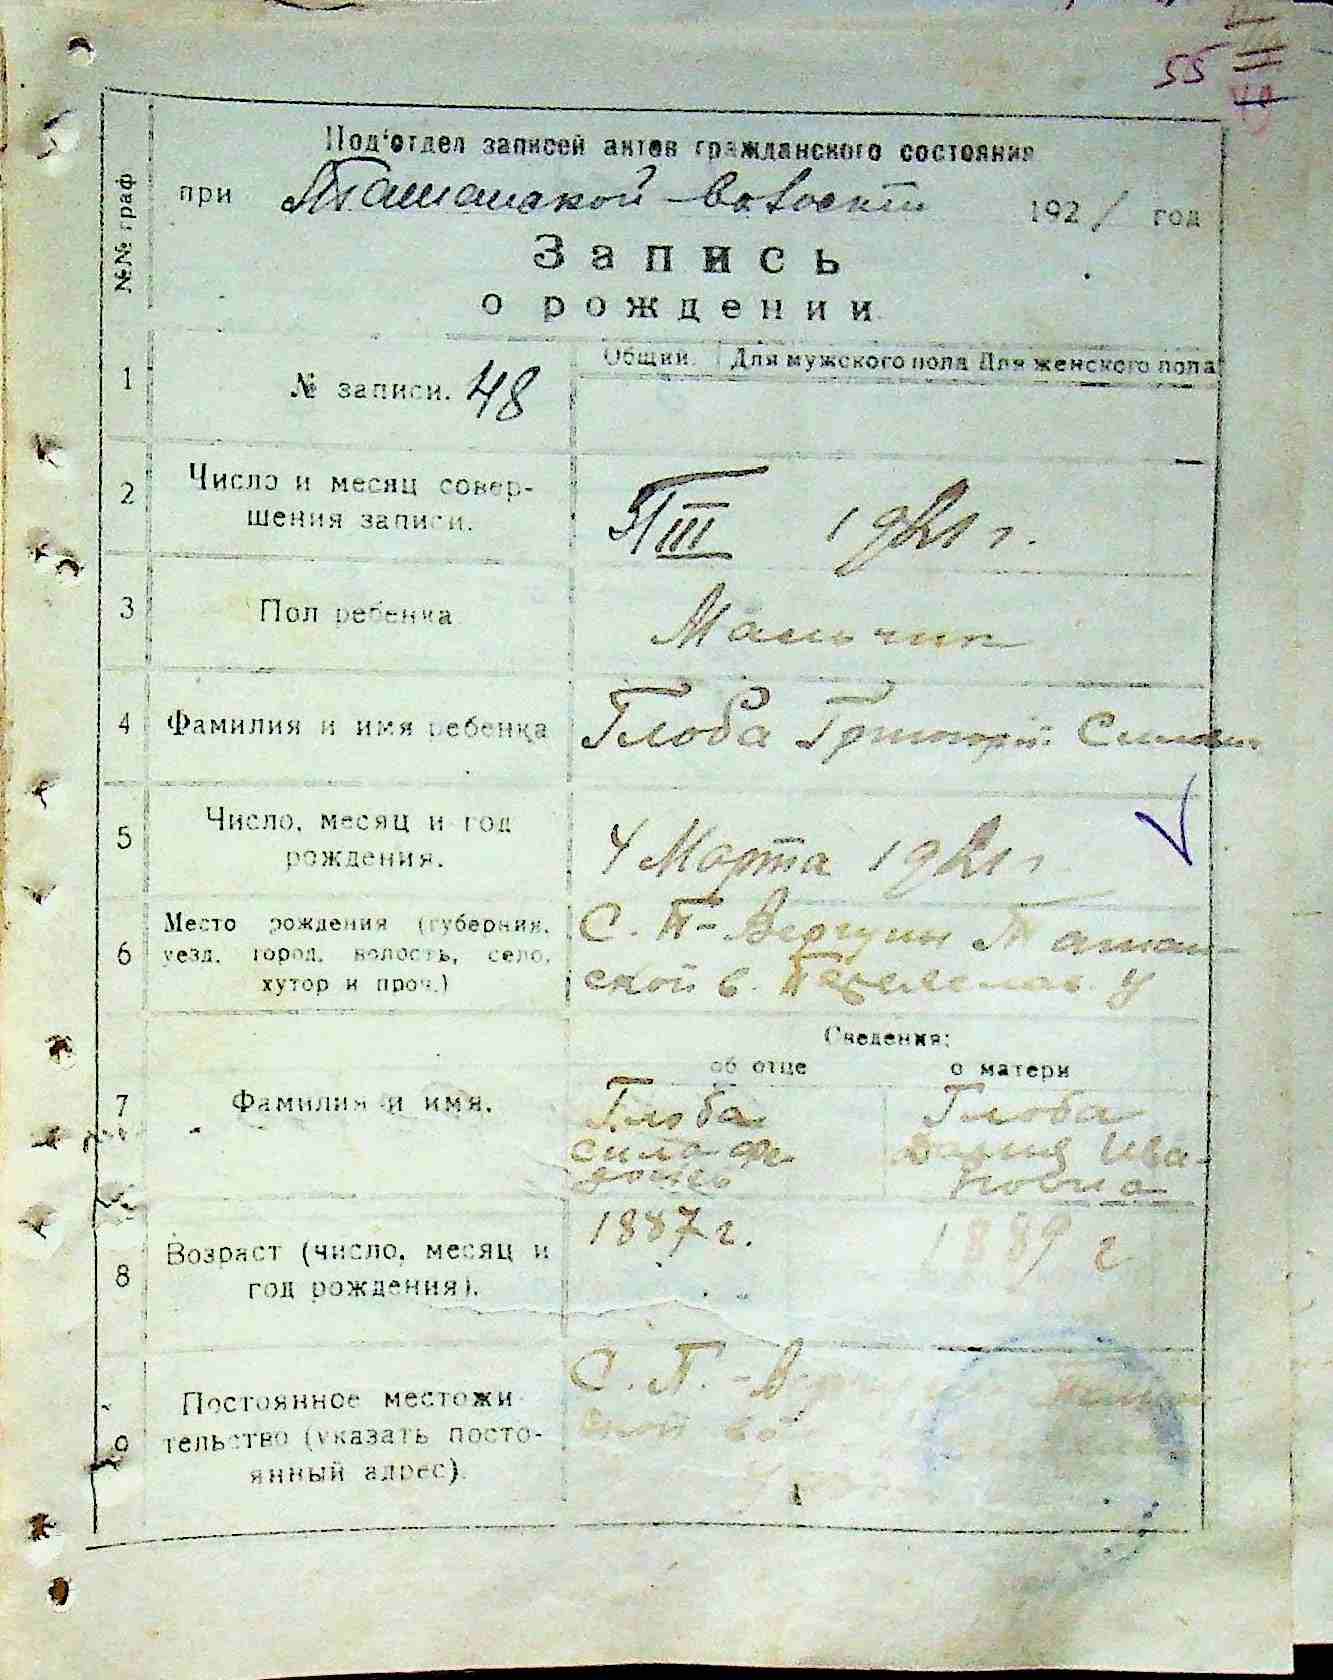 55
Под'отдел записей актов гражданского состояния
при Ташанской волости 1921 год
№№ граф
Запись
о рождении
1 № записи. 48
Общии. Для мужского пола Для женского пола
2 Число и месяц совершения записи.
5/III 1921 г.
3 Пол ребенка
Мальчик
4 Фамилия и имя ребенка
Глоба Григорий
5 Число, месяц и год
рождения.
4 Марта 1921 г
6 Место рождения (губерния,
уезд, город, волость, село,
хутор и проч.)
С. П-Вергуни Ташан-
ской в. Переяслав. у
Сведения:
об отце о матери
7 Фамилия и имя.
Глоба
Сила
Глоба
Дария Ива-
новна
8 Возраст (число, месяц и
год рождения).
1887 г. 1889 г
9 Постоянное местожи-
тельство (указать посто-
янный адрес).
С. П.-